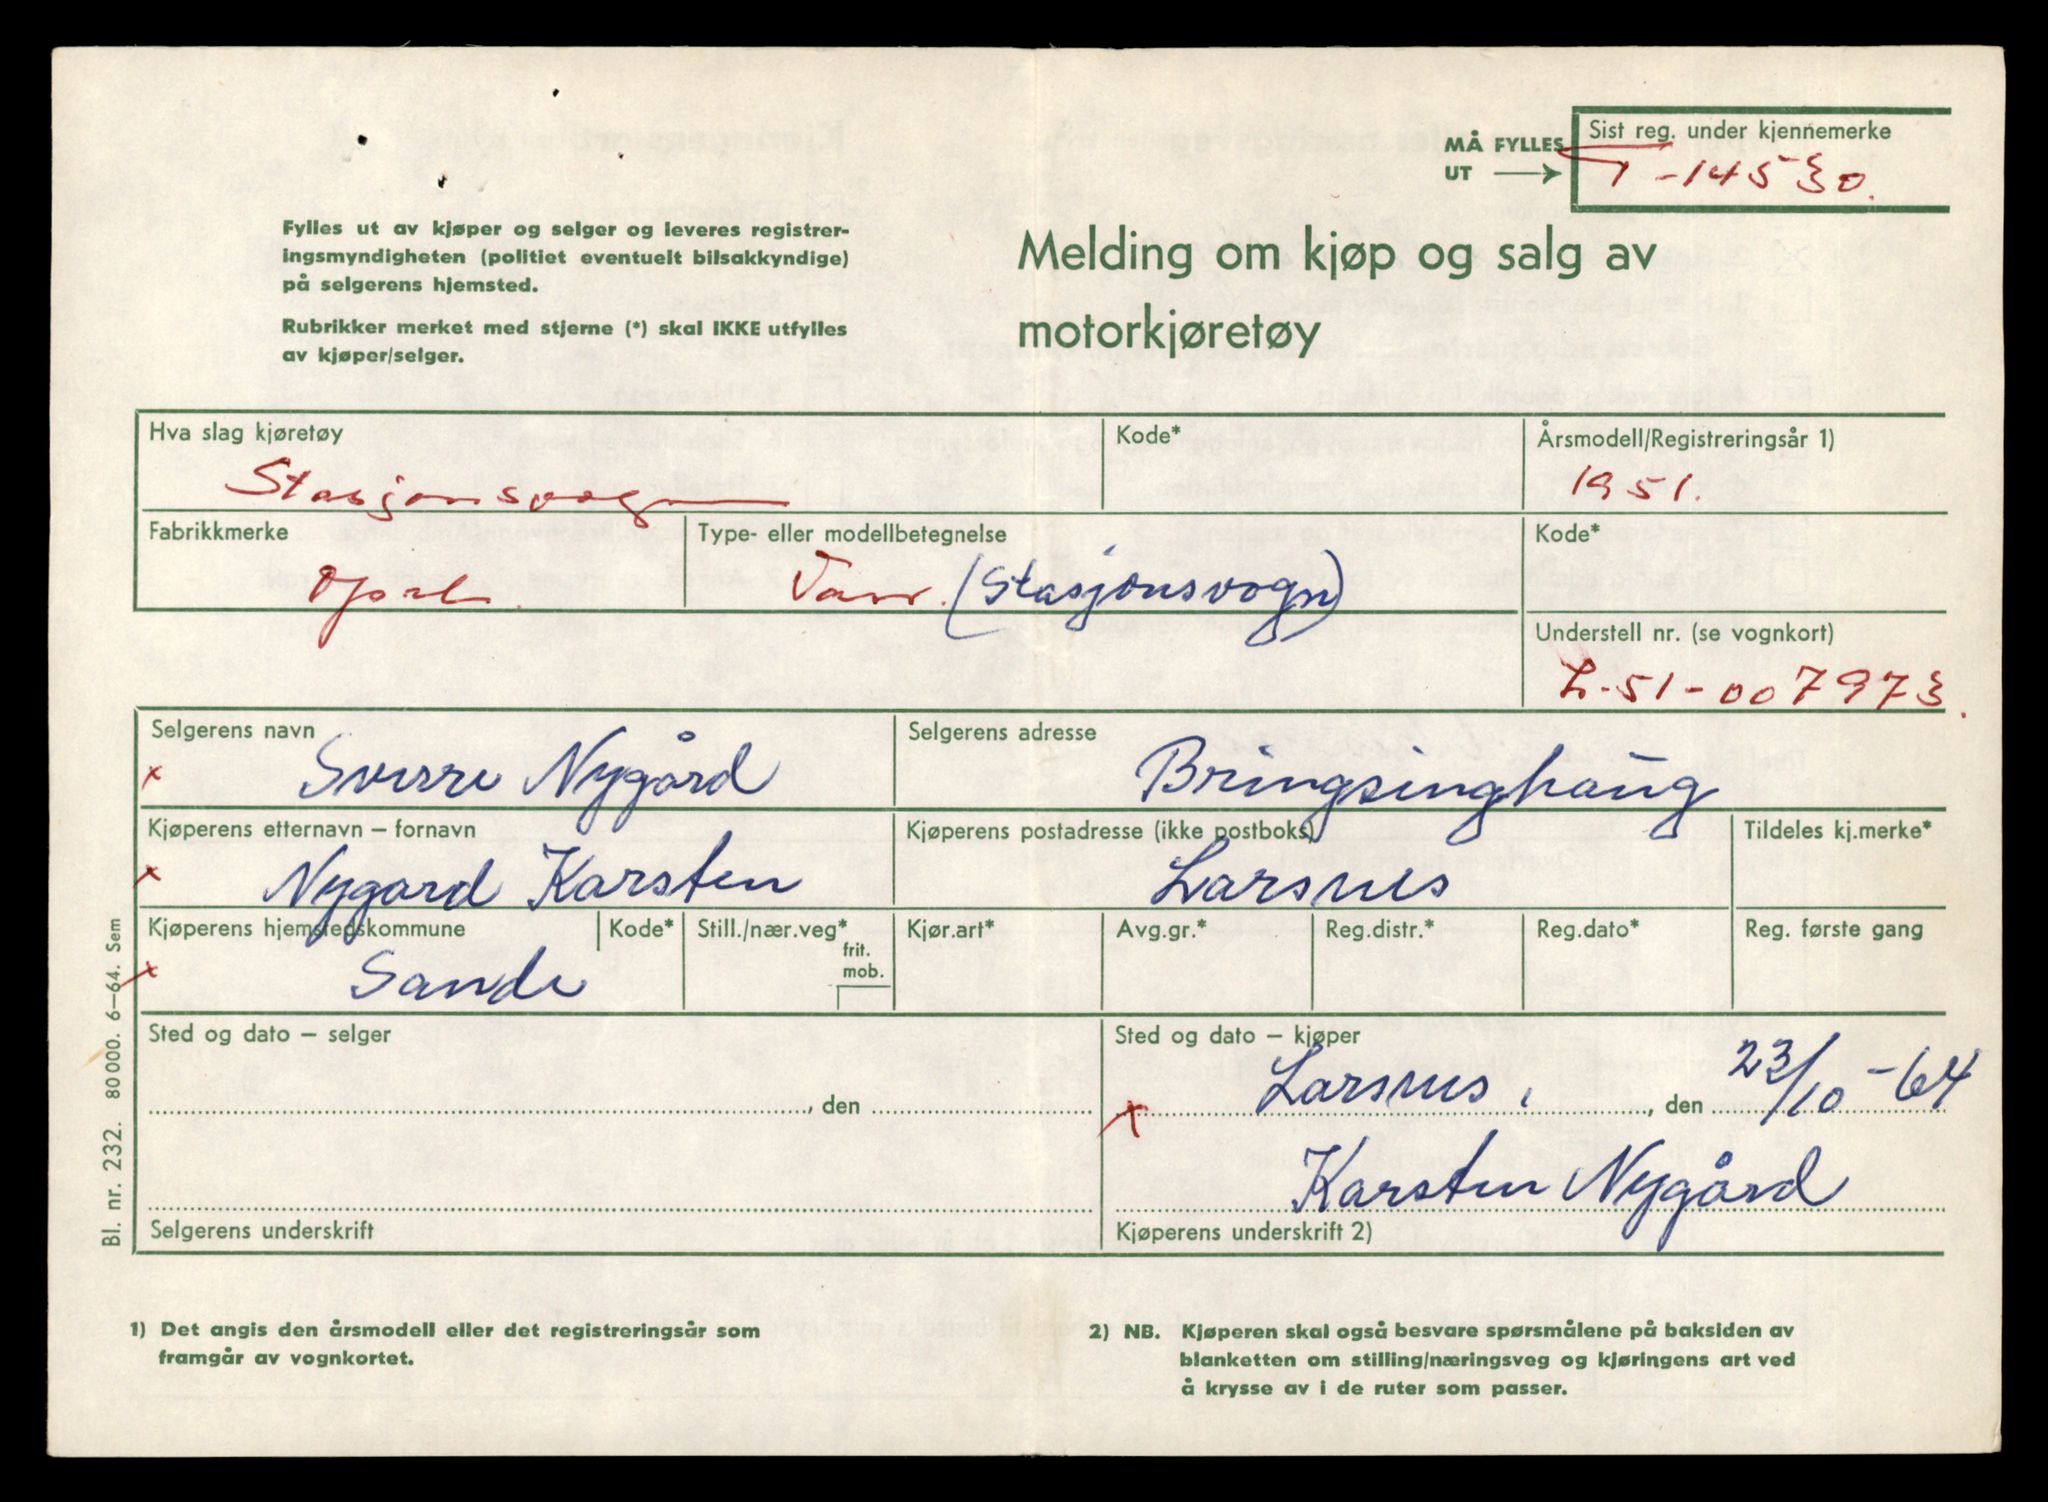 MÅ FYLLES
UT
Sist reg. under kjennemerke
T-14530.
Fylles ut av kjøper og selger og leveres registrer-
ingsmyndigheten (politiet eventuelt bilsakkyndige)
på selgerens hjemsted.
Rubrikker merket med stjerne (*) skal IKKE utfylles
av kjøper/selger.
Melding om kjøp og salg av
motorkjøretøy
Hva slag kjøretøy
Kode*
Årsmodell/Registreringsår 1)
Stasjonsvogn
1951.
Fabrikkmerke
Type- eller modellbetegnelse
Kode*
Opel. Van. (Stasjonsvogn)
Understell nr. (se vognkort)
L-51-007973.
Selgerens navn
Selgerens adresse
x Sverre Nygård
Bringsinghaug
Kjøperens etternavn – fornavn
Kjøperens postadresse (ikke postboks)
Tildeles kj.merke*
x Nygård Karsten
Larsnes
Kjøperens hjemstedskommune
Kode*
Still./nær.veg*
frit.
mob.
Kjør.art*
Avg.gr.*
Reg.distr.*
Reg.dato*
Reg. første gang
x Sande
Sted og dato – selger
Sted og dato – kjøper
, den
x Larsnes, , den 23/10-64
Karsten Nygård
Selgerens underskrift
Kjøperens underskrift 2)
Bl. nr. 232. 80 000. 6–64. Sem
1) Det angis den årsmodell eller det registreringsår som
framgår av vognkortet.
2) NB. Kjøperen skal også besvare spørsmålene på baksiden av
blanketten om stilling/næringsveg og kjøringens art ved
å krysse av i de ruter som passer.